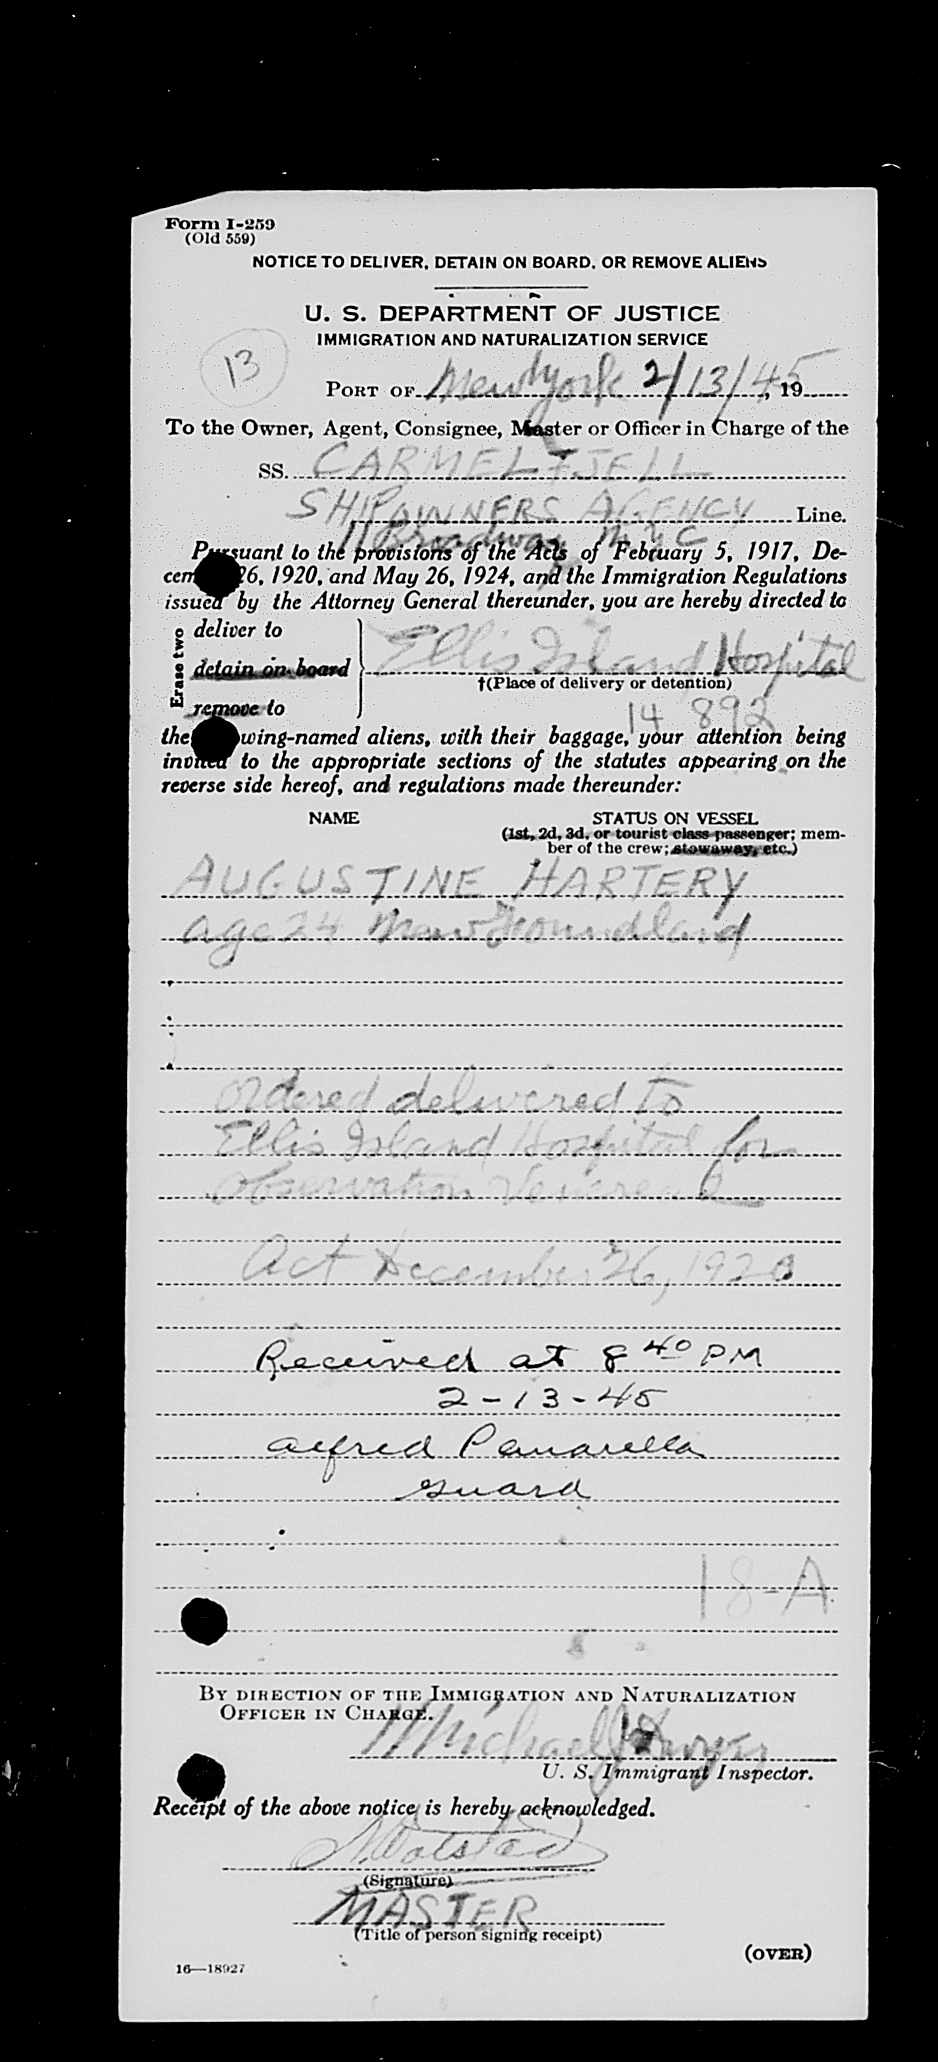 Form I-259
(Old 559)
NOTICE TO DELIVER, DETAIN ON BOARD, OR REMOVE ALIENS
U. S. DEPARTMENT OF JUSTICE
IMMIGRATION AND NATURALIZATION SERVICE
13
PORT OF New York 2/13/45, 19
To the Owner, Agent, Consignee, Master or Officer in Charge of the
SS. CARMELFJELL
SHIPOWNERS AGENCY Line.
11 Broadway N.Y.C
Pursuant to the provisions of the Acts of February 5, 1917, De-
cem 26, 1920, and May 26, 1924, and the Immigration Regulations
issued by the Attorney General thereunder, you are hereby directed to
Erase two
deliver to
detain on board
remove to
Ellis Island Hospital
†(Place of delivery or detention)
14 892
the wing-named aliens, with their baggage, your attention being
invited to the appropriate sections of the statutes appearing on the
reverse side hereof, and regulations made thereunder:
NAME STATUS ON VESSEL
(1st, 2d, 3d, or tourist class passenger; mem-
ber of the crew; stowaway, etc.)
AUGUSTINE HARTERY
age 24 Newfoundland
ordered delivered to
Ellis Island Hospital for
Observation Venereal
Act December 26, 1920
Received at 8 40 PM
2-13-45
Alfred Panarella
Guard
18-A
BY DIRECTION OF THE IMMIGRATION AND NATURALIZATION
OFFICER IN CHARGE.
Michael J Dwyer
U. S. Immigrant Inspector.
Receipt of the above notice is hereby acknowledged.
(Signature)
MASTER
(Title of person signing receipt)
(OVER)
16—18927